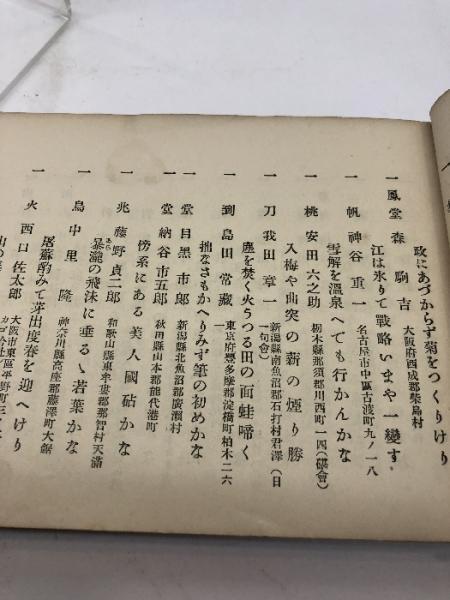 政にあづからず菊をつくりけり
一鳳堂 森駒吉 大阪府西成郡柴島村
江は氷りて戰略いまや一變す
一帆 神谷重一 名古屋市中區古渡町九ノ一八
雪解を温泉へでも行かんかな
一桃 安田六之助 栃木縣那須郡川西町一四(碟會)
入梅や曲突の薪の煙り勝
一刀 我田章一 新潟縣南魚沼郡石打村君澤(日一句會)
塵を焚く火うつる田の面蛙啼く
一到 島田常藏 東京府豐多摩郡淀橋町柏木二六一
拙なさもかへりみず筆の初めかな
一堂 目黒市郎 新潟縣北魚沼郡廣瀬村
一堂 納谷市五郎 秋田縣山本郡能代港町
傍系にある美人國砧かな
一兆 藤野貞二郎 和歌山縣東牟婁郡那智村天滿
暴瀧の飛沫に垂るゝ若葉かな
あら
一鳥 中里隆 神奈川縣高座郡藤澤町大鋸
屠蘇酌みて芽出度春を迎へけり
一火 西口佐太郎 大阪市東區平野町三